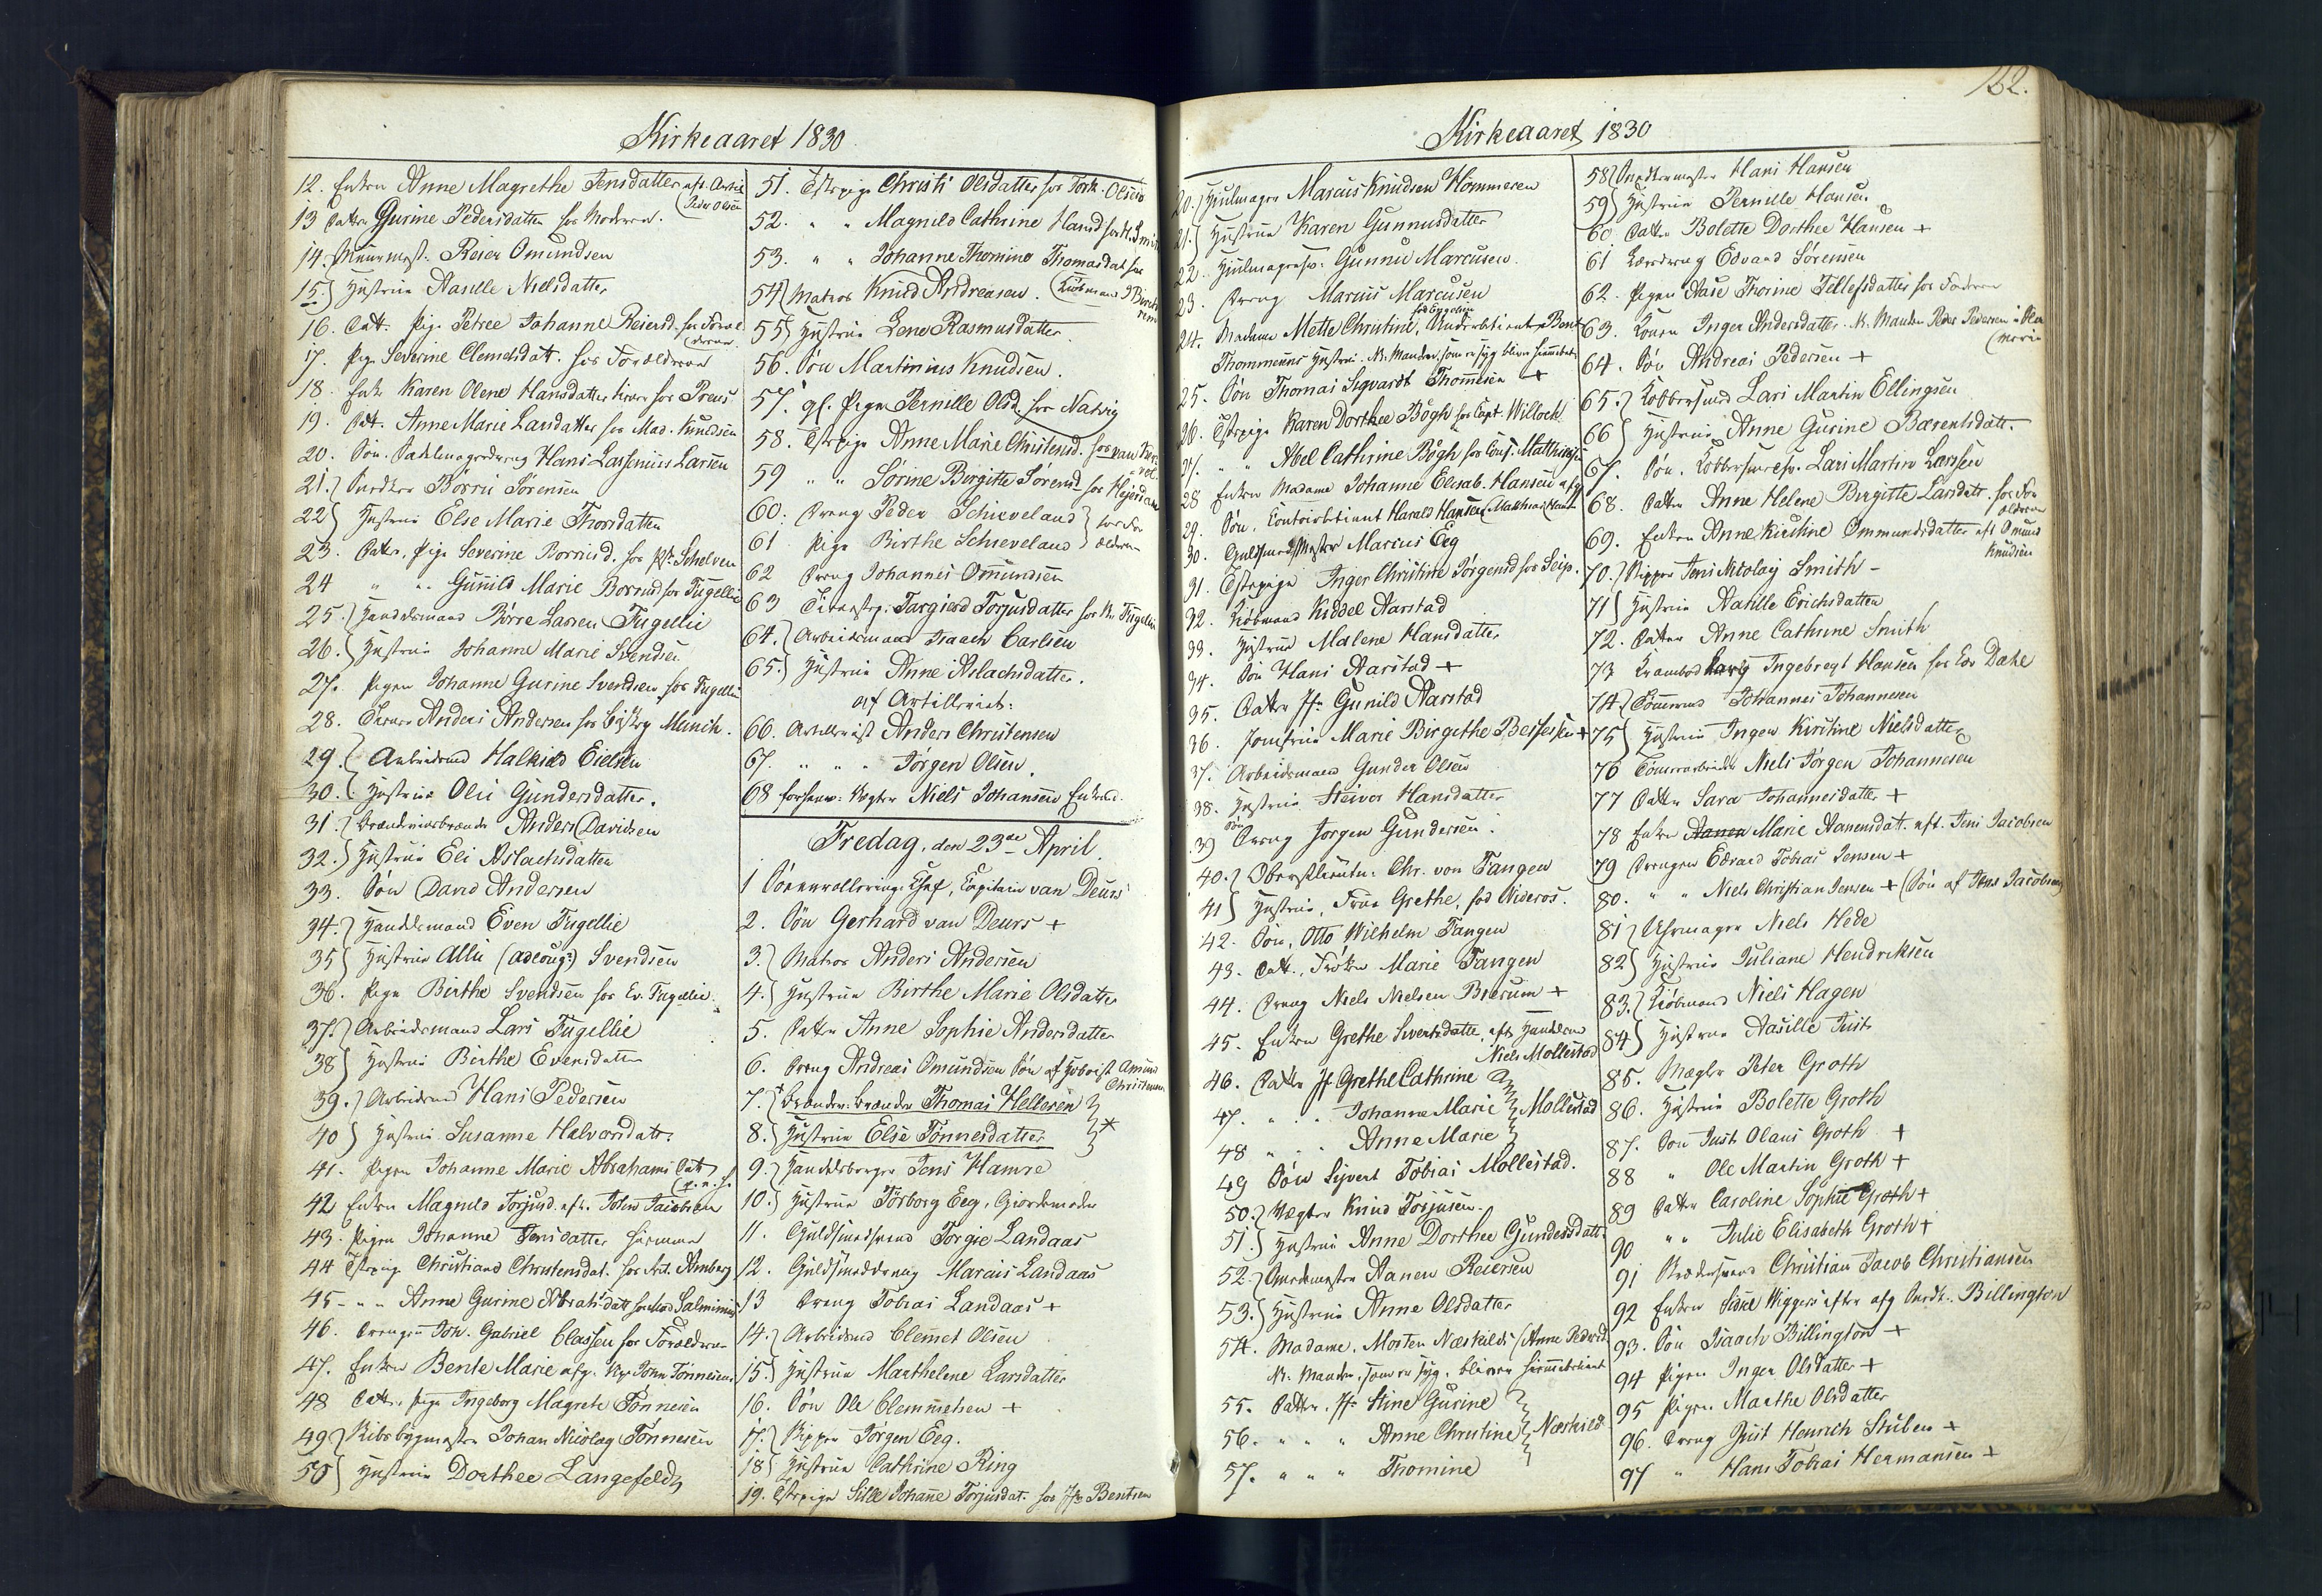 Kirkeaaret 1830
12. Enken Anne Magrethe Jensdatter eft. Artil
(Peder Olsen
13 Datter Gurine Pedersdatter hos Moderen.
14. Muurmest. Reier Omundsen
15 Hustrue Aasille Nielsdatter
16. Datt. Pige Petree Johanne Reiersd. hos Foræl
(drene
17. Pige Severine Clemetsdatt. hos Forældrene
18. Enke Karen Olene Hansdatter hos Preus
19. Datt. Anne Marie Larsdatter hos Mad. Knudsen
20. Søn. Sadelmagerdreng Hans Lassenius Larsen
21. Snedker Børre Sørensen
22 Hustrue Else Marie Thorsdatter
23. Datter, Pige Severine Børresd. hos Pr. Schelven
24 " " Gunild Marie Børresd hos Fugellie
25. Handelsmand Børre Larsen Fugellie
26. Hustrue Johanne Marie Svendsen
27. Pigen Johanne Gurine Svendsen hos Fugellie
28. Anders Andersen hos Munch.
29. Arbeidsmd Halkield Eielsen
30. Hustrue Olei Gundersdatter.
31. Brændeviinsbrænder Anders Davidsen
32. Hustrue Eli Aslachsdatter
33. Søn David Andersen
34. Handelsmand Even Fugellie
35 Hustrue Allie (Adelouge) Svendsen
36. Pige Birthe Svendsen hos Ev. Fugellie.
37. Arbeidsmand Lars Fugellie
38 Hustrue Birthe Evensdatter
39. Arbeidsmd Hans Pedersen
40 Hustrue Susanne Halvorsdatt.
41. Pigen Johanne Marie Abrahams Datt
42 Enken Magnild Torjusd. eft. John Jacobsen
43. Pigen Johanne Jensdatter hiemme
44 Tstpige Christiane Christensdat. hos Art. Amberg
45 - " " Anne Gurine Abrahsdatt hos Mad Salminius
46. Drengen Joh. Gabriel Classen hos Forældrene
47. Enken Bente Marie afg. Skip John Tønnesens
48 Datter. Pige Ingeborg Magrete Tønnesen
49 Skibsbygmester Johan Nicolay Tønnesen
50 Hustrue Dorthee Langefeldt
51. Tstpige Christi Olsdatter hos Tork. Olsen
52. " " Magnild Cathrine Hansd hos H. Smith
53. " " Johanne Thomine Thomasdat hos
(Kiøbmand
54 Matros Knud Andreasen.
55 Hustrue Lene Rasmusdatter
56. Søn Martinius Knudsen.
57. gl. Pige Pernille Olsd. hos Nadvig
58. Tstpige Anne Marie Christensd. hos van
59 " " Sørine Birgitte Sørensd hos Heierdahl
60. Dreng Peder Schieveland hos For
61 Pige Birthe Schieveland ældrene
62 Dreng Johannes Omundsen
63 Tstp. Targierd Torjusdatter hos Kr. Fugellie
64. Arbeidsmand Isaach Carlsen
65. Hustrue Anne Aslachsdatter.
af Artilleriet:
66. Artillerist Anders Christensen
67. " " " Jørgen Olsen.
68 forhenv: Vægter Niels Johansen Enkem.
Fredag, den 23de April.
1 Søenrollerings Chef, Capitain van Deurs
2. Søn Gerhard van Deurs +
3. Matros Anders Andersen
4. Hustrue Birthe Marie Olsdatter
5. Datter Anne Sophie Andersdatter
6. Dreng Andreas Omundsen Søn af Hoboist Amund
Christensen
7. Brændev. brænder Thomas Hellesen
8. Hustrue Else Tønnesdatter
9. Handelsborger Jens Hamre
10. Hustrue Tørborg Eeg, Giordemoder
11. Guldsmedsvend Torgie Landaas
12. Guldsmeddreng Marcus Landaas
13 Dreng Tobias Landaas +
14. Arbeidsmd Clemet Olsen
15. Hustrue Marthelene Larsdatter
16. Søn Ole Clemmetsen +
17. Skipper Jørgen Eeg.
18 Hustrue Cathrine Ring
19. Tstpige Sille Johanne Torjusdat. hos Jfr Bentsen
162.
Kirkeaaret 1830
20. Hiulmager Marcus Knudsen Hommeren
21. Hustrue Karen Gunnusdatter
22. Hiulmagersv. Gunnu Marcusen.
23. Dreng Marius Marcusen
24. Madame Mette Christine, fød Bygelsen Underbetient Bent
Thommesens Hustrue. Nb. Manden, som er syg bliver hiemmebetient
25. Søn Thomas Sigvardt Thommesen +
26. Tstpige Karen Dorthee Bøgh hos Capt. Willoch
27. " " Abel Cathrine Bøgh hos Cons. Matthiesen
28 Enken Madame Johanne Elisab. Hansen afg
29. Søn, Contoirbetient Harald Hansen (Matthias Hansen
30. Guldsmedmester Marcus Eeg
31. Tstpige Inger Christine Jørgensd hos Seip.
32. Kiøbmand Kiddel Aarstad
33. Hustrue Malene Hansdatter
34. Søn Hans Aarstad +
35. Datter Jfr Gunild Aarstad
36. Jomfrue Marie Birgethe Bessesen +
37. Arbeidsmand Gunder Olsen
38. Hustrue Steivor Hansdatter
39 Søn Dreng Jørgen Gundersen.
40. Oberstlieutn: Chr. von Fangen
41 Hustrue, Frue Grethe, fød Nideros.
42. Søn, Otto Wilhelm Fangen
43. Datt., Frøken Marie Fangen
44. Dreng Niels Nielsen Bierum +
45. Enken Grethe Sivertsdatter eft Handelsm
Niels Mollestad
46. Datter Jf Grethe Cathrine
47. " " Johanne Marie Mollestad
48 " " Anne Marie
49 Søn Syvert Tobias Mollestad.
50. Vægter Knud Torjusen.
51. Hustrue Anne Dorthee Gundersdatt.
52. Smedemester Aanen Reiersen
53. Hustrue Anne Olsdatter
54. Madame. Morten Næskilds (Anne Pedersd.
Nb. Manden, som er syg, bliver hiemmebetient
55. Datter. Jfr Stine Gurine
56. " " " Anne Christine Næskild
57. " " " Thomine
58 Snedkermester Hans Hansen
59 Hustrue Pernille Hansen
60 Datter Bolette Dorthee Hansen +
61 Læredreng Edvard Sørensen
62. Pigen Aase Thorine Tellefsdatter hos Faderen
63. Konen Inger Andersdatter. N. Manden Peder Pedersen
64. Søn Andreas Pedersen +
65. Kobbersmed Lars Martin Ellingsen
66 Hustrue Anne Gurine Bærentsdatt.
67. Søn. Kobbersmedsv. Lars Martin Larsen
68. Datter Anne Helene Birgitte Larsdatt. hos For
ældrene
69. Enken Anne Kirstine Ommundsdatter eft Omund
Knudsen
70. Skipper Jens Nicolay Smith -
71 Hustrue Aasille Erichsdatter
72. Datter Anne Cathrine Smith
73 Kramboddreng Ingebregt Hansen hos Edv Dahl
74 Tømmermd Johannes Johannesen
75 Hustrue Inger Kirstine Nielsdatter
76 Tømmerarbeider Niels Jørgen Johannesen
77 Datter Sara Johannesdatter +
78 Enken Aanen Marie Aanensdatt. eft. Jens Jacobsen
79 Drengen Edvard Tobias Jensen +
80. " " Niels Christian Jensen + (Søn af Jens Jacobsen)
81 Uhrmager Niels Hede
82 Hustrue Juliane Hendriksen
83. Kiøbmand Niels Hagen
84 Hustrue Aasille Juist
85. Mægler Peter Groth
86. Hustrue Bolette Groth
87. Søn Just Olaus Groth +
88 " Ole Martin Groth +
89 Datter Caroline Sophie Groth +
90 " " Julie Elisabeth Groth +
91 Skrædersvend Christian Jacob Christiansen
92 Enken Sidsel Wiggers efter afg Snedk. Billington
93. Søn Isaach Billington +
94 Pigen Inger Olsdatter +
95 Pigen Marthe Olsdatter
96. Dreng Just Henrich Stuben +
97 " Hans Tobias Hermansen +